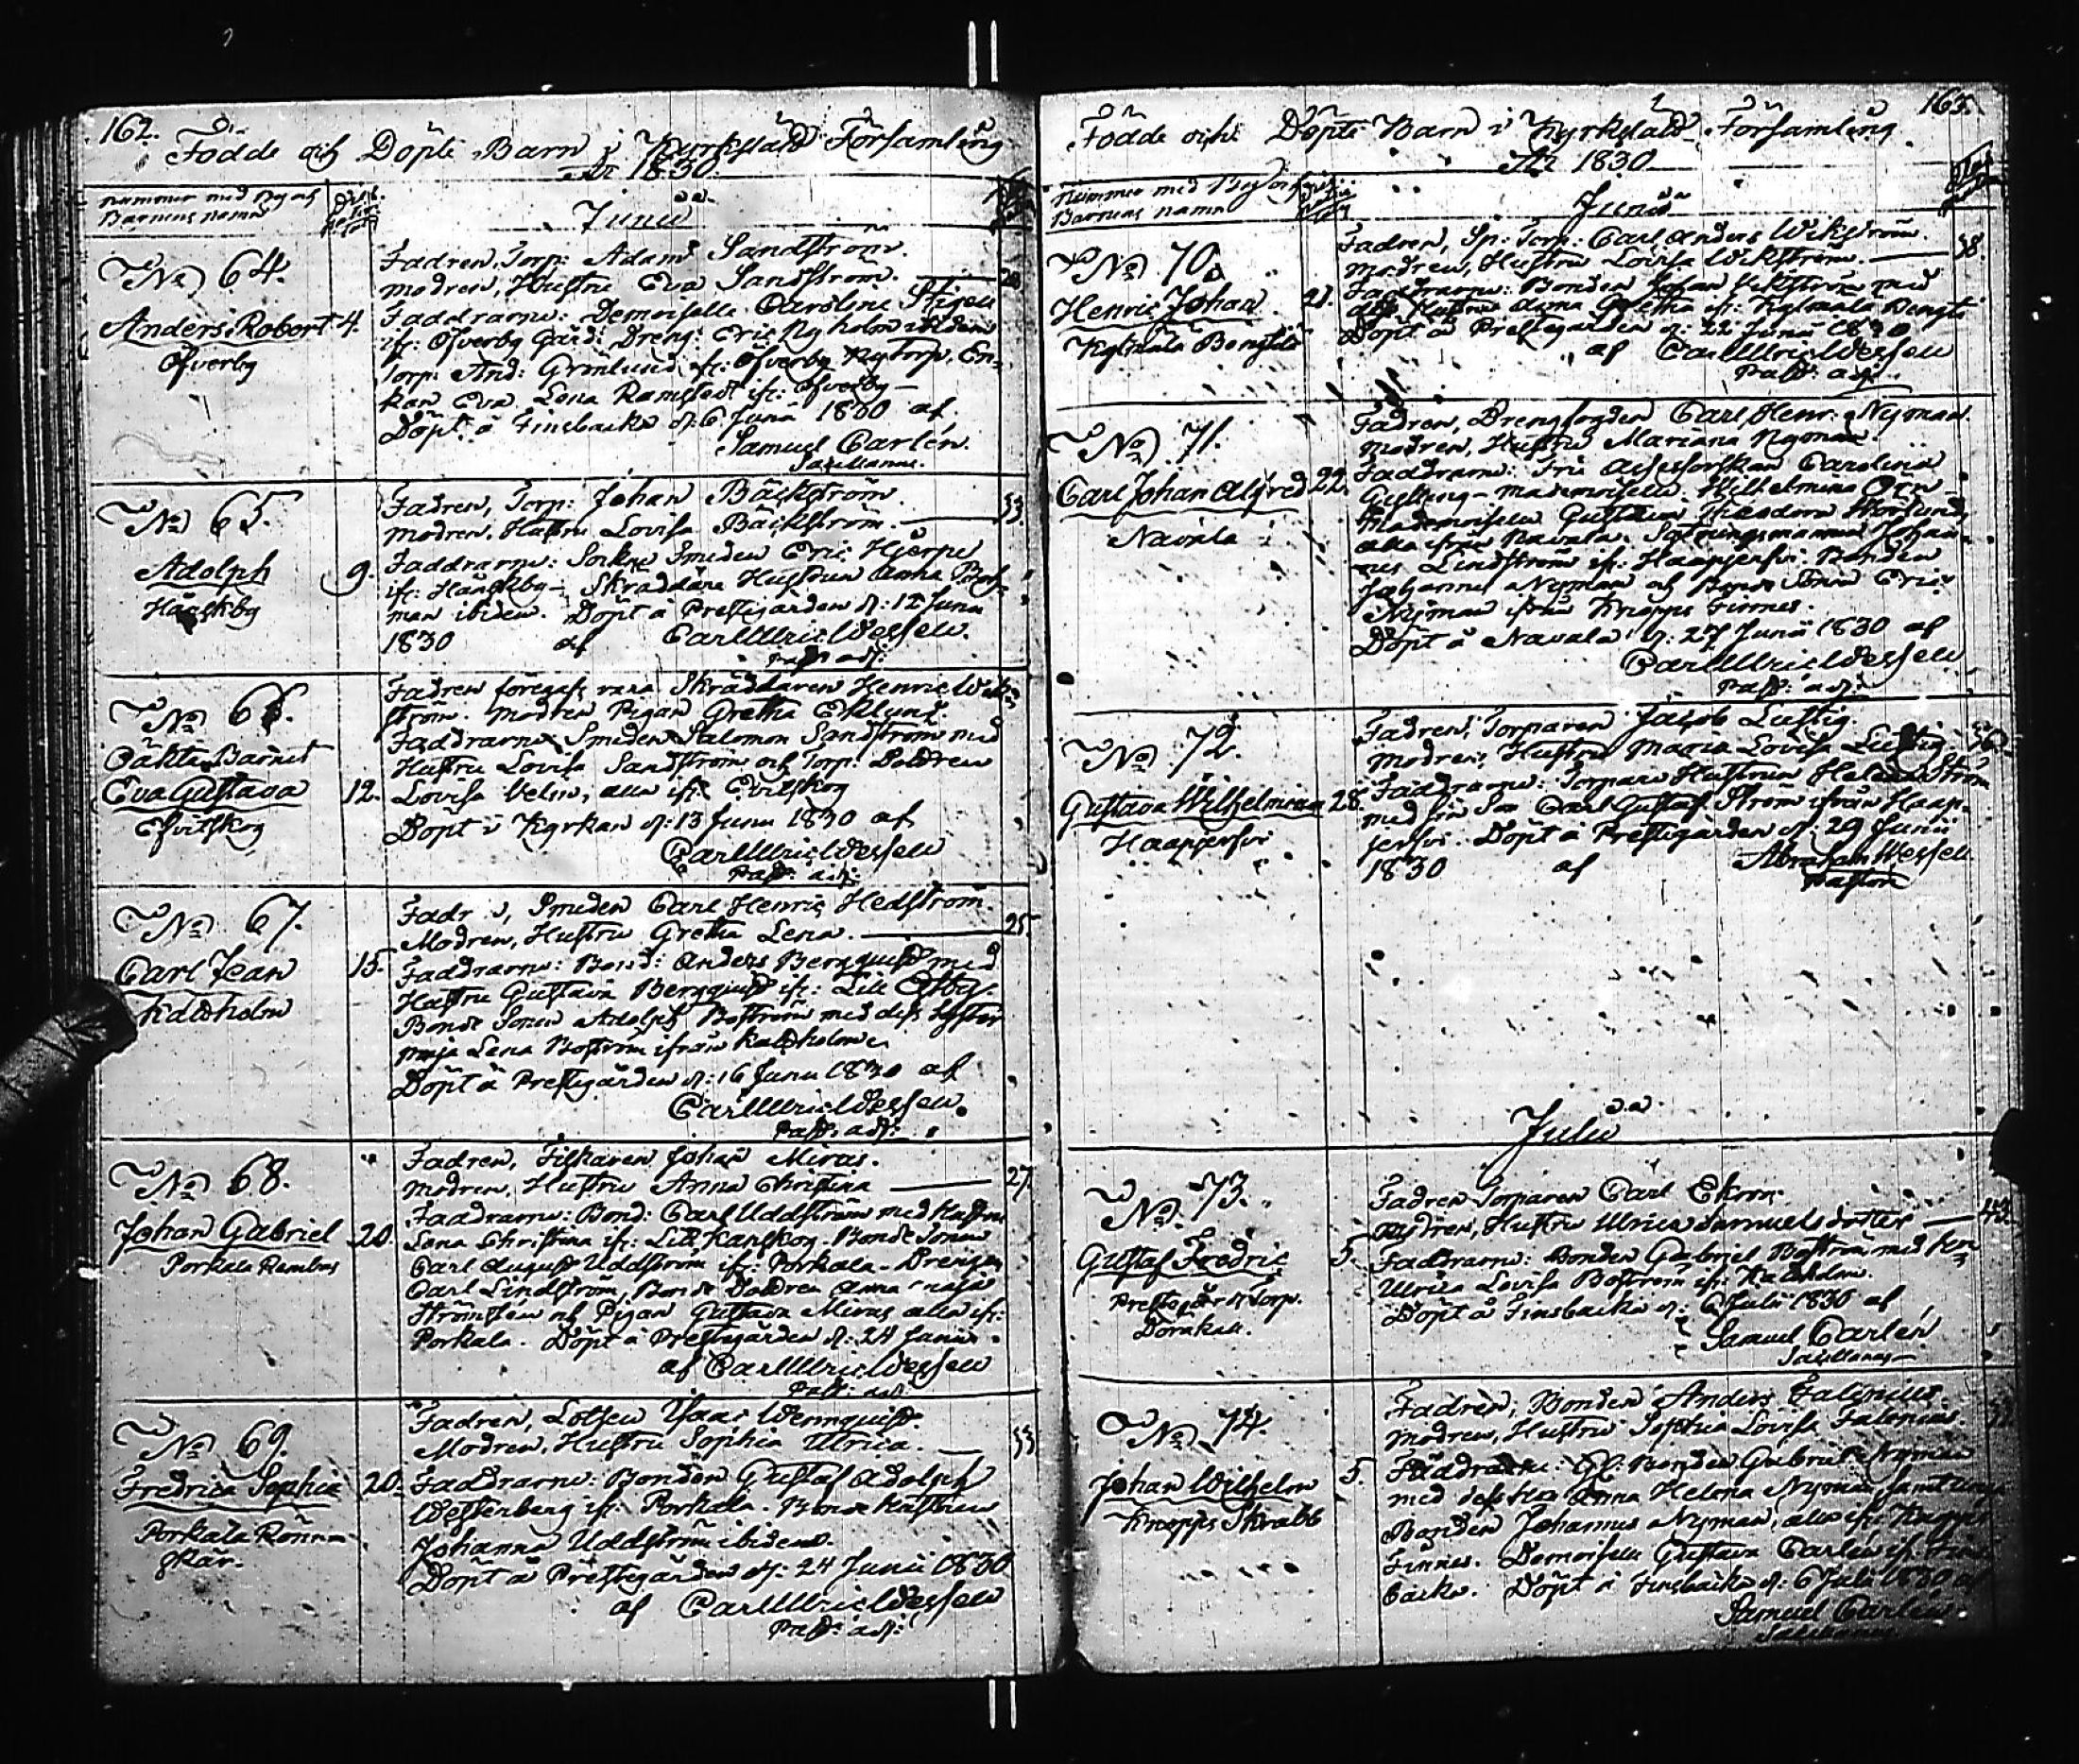 162.
Födde och Döpte Barn i Kyrkslätt Församling
År 1830.
nummer med By och
Barnens namn
Junii
No 64.
Anders Robert
Öfverby
4.
Fadren, Torp: Adam Sandström.
modren, Hustru Eva Sandström.
Faddrarne: Demoiselle Carolina
ifr: Öfverby Gård: Dreng: Eric Nyholm ibidem
Torp: And: Grönlund, ifr: Öfverby Nytorp, En-
kan Eva Lena Ramstedt ifr: Öfverby —
Döpt å Finsbacka d: 6 Junii 1830 af
Samuel Carlén.
Sacellanus.
No 65.
Adolph
9.
Fadren, Torp: Johan Bäckström.
modren, Hustru Lovisa Bäckström. 33.
Faddrarne: Sockne Smeden Eric Hjerpe
Skräddare Hustrun Anna
man ibidem. Döpt å Prestegården d: 12 Junii
1830 af Carl Ulric Wessell.
Past: adj:
No 66.
Oäkta Barnet
Eva Gustava
Evitskog
12.
Fadren föregifs vara Skräddaren Henric Wik-
ström. modren Pigan Gretha Eklund.
Faddrarne Smeden Salomon Sandström med
Hustru Lovisa Sandström och Torp: Doldren
Lovisa Velin, alla ifr: Evitskog
Döpt i Kyrkan d: 13 Junii 1830 af
Carl Ulric Wessell
Past: adj:
No 67.
Carl Jean
Kaldholm
15.
Smeden Carl Henric Hedström.
Modren, Hustru Gretha Lena. 25.
Faddrarne: Bond: Anders Bergquist med
Hustru Gustava Bergquist ifr: Lill
Bonde Sonen Adolph Boström med dess Syster
Maja Lena Boström ifrån Kaldholm
Döpt å Prestegården d: 16 Junii 1830 af
Carl Ulric Wessell.
Past: adj:
No 68.
Johan Gabriel
Porkala Rambus
20.
Fadren, Fiskaren Johan Miras.
modren, Hustru Anna Christina 27.
Faddrarne: Bond: Carl Uddström med Hustru
Lena Christina ifr: Lill Kanskog. Bonde Sonen
Carl August Uddström ifr: Porkala. Drengen
Carl Lindström, Bonde Doldren Anna Maja
Strömsten och Pigan Gustava Miras alla ifr:
Porkala. Döpt å Prestegården d: 24 Junii
af Carl Ulric Wessell
Past: adj:
No 69.
Fredrica Sophia
Porkala Rönn-
skär.
20.
Fadren, Lotsen Isaac Wennquist.
Modren, Hustru Sophia Ulrica. 33
Faddrarne: Bonden Gustaf Adolph
Westerberg ifr: Porkala. Bonde Hustrun
Johanna Uddström ibidem.
Döpt å Prestegården d: 24 Junii 1830
af Carl Ulric Wessell
Past: adj:
163.
Födde och Döpte Barn i Kyrkslätt Församling.
År 1830
Nummer med By och
Barnens namn
Junii
No 70.
Henric Johan
Kylmälä Bengts
21.
Fadren, Sp: Torp: Carl Anders Wikström.
modren, Hustru Lovisa Wikström. 38.
Faddrarne: Bonden Johan Wikström med
dess Hustru Anna Gretha ifr: Kylmälä Bengts
Döpt å Prestegården d: 22 Junii 1830
af Carl Ulric Wessell
Past: adj:
No 71.
Carl Johan Alfred
Navala
22.
Fadren, Drengfogden Carl Henr: Nyman.
modren, Hustru Mariana Nyman.
Faddrarne: Fru Assessorskan Carolina
mademoiselle Wilhelmina
Mademoiselle Gustava Theodora
alla ifrån Navala. Sexmannen Johan-
nes Lindström ifr: Haapjerfvi. Bonden
Johannes Nyman och Bonde Sonen Eric
Nyman ifrån Knopps Finnes.
Döpt å Navala d: 27 Junii 1830 af
Carl Ulric Wessell
Past: adj:
No 72.
Gustava Wilhelmina
Haapjerfvi
28.
Fadren, Torparen Jacob Lustig.
modren, Hustru Maria Lovisa Lustig
Faddrarne: Torpare Hustrun Helena Ström
med sin Son Carl Gustaf Ström ifrån Haap-
jerfvi. Döpt å Prestegården d: 29 Junii
1830 af Abraham Wessell
Pastor
Julii
No 73.
Gustaf Fredric
Prestegårds Torp.
5.
Fadren Torparen Carl Ekrom.
modren, Hustru Ulrica Samuelsdotter 43.
Faddrarne: Bonden Gabriel Boström med
Ulrica Lovisa Boström ifr: Kaldholm.
Döpt å Finsbacka d: 6 Julii 1830 af
Samuel Carlén
Sacellanus
No 74.
Johan Wilhelm
Knopps Skrabb
5.
Fadren, Bonden Anders Falenius.
modren, Hustru Sophia Lovisa Falenius.
Faddrarne: Bonden Gabriel Nyman
med dess Anna Helena Nyman samt
Bonden Johannes Nyman, alla ifr: Knopps
Finnes. Demoiselle Gustava Carlén ifr: Fins-
backa. Döpt å Finsbacka d: 6 Julii 1830 af
Samuel Carlén.
Sacellanus